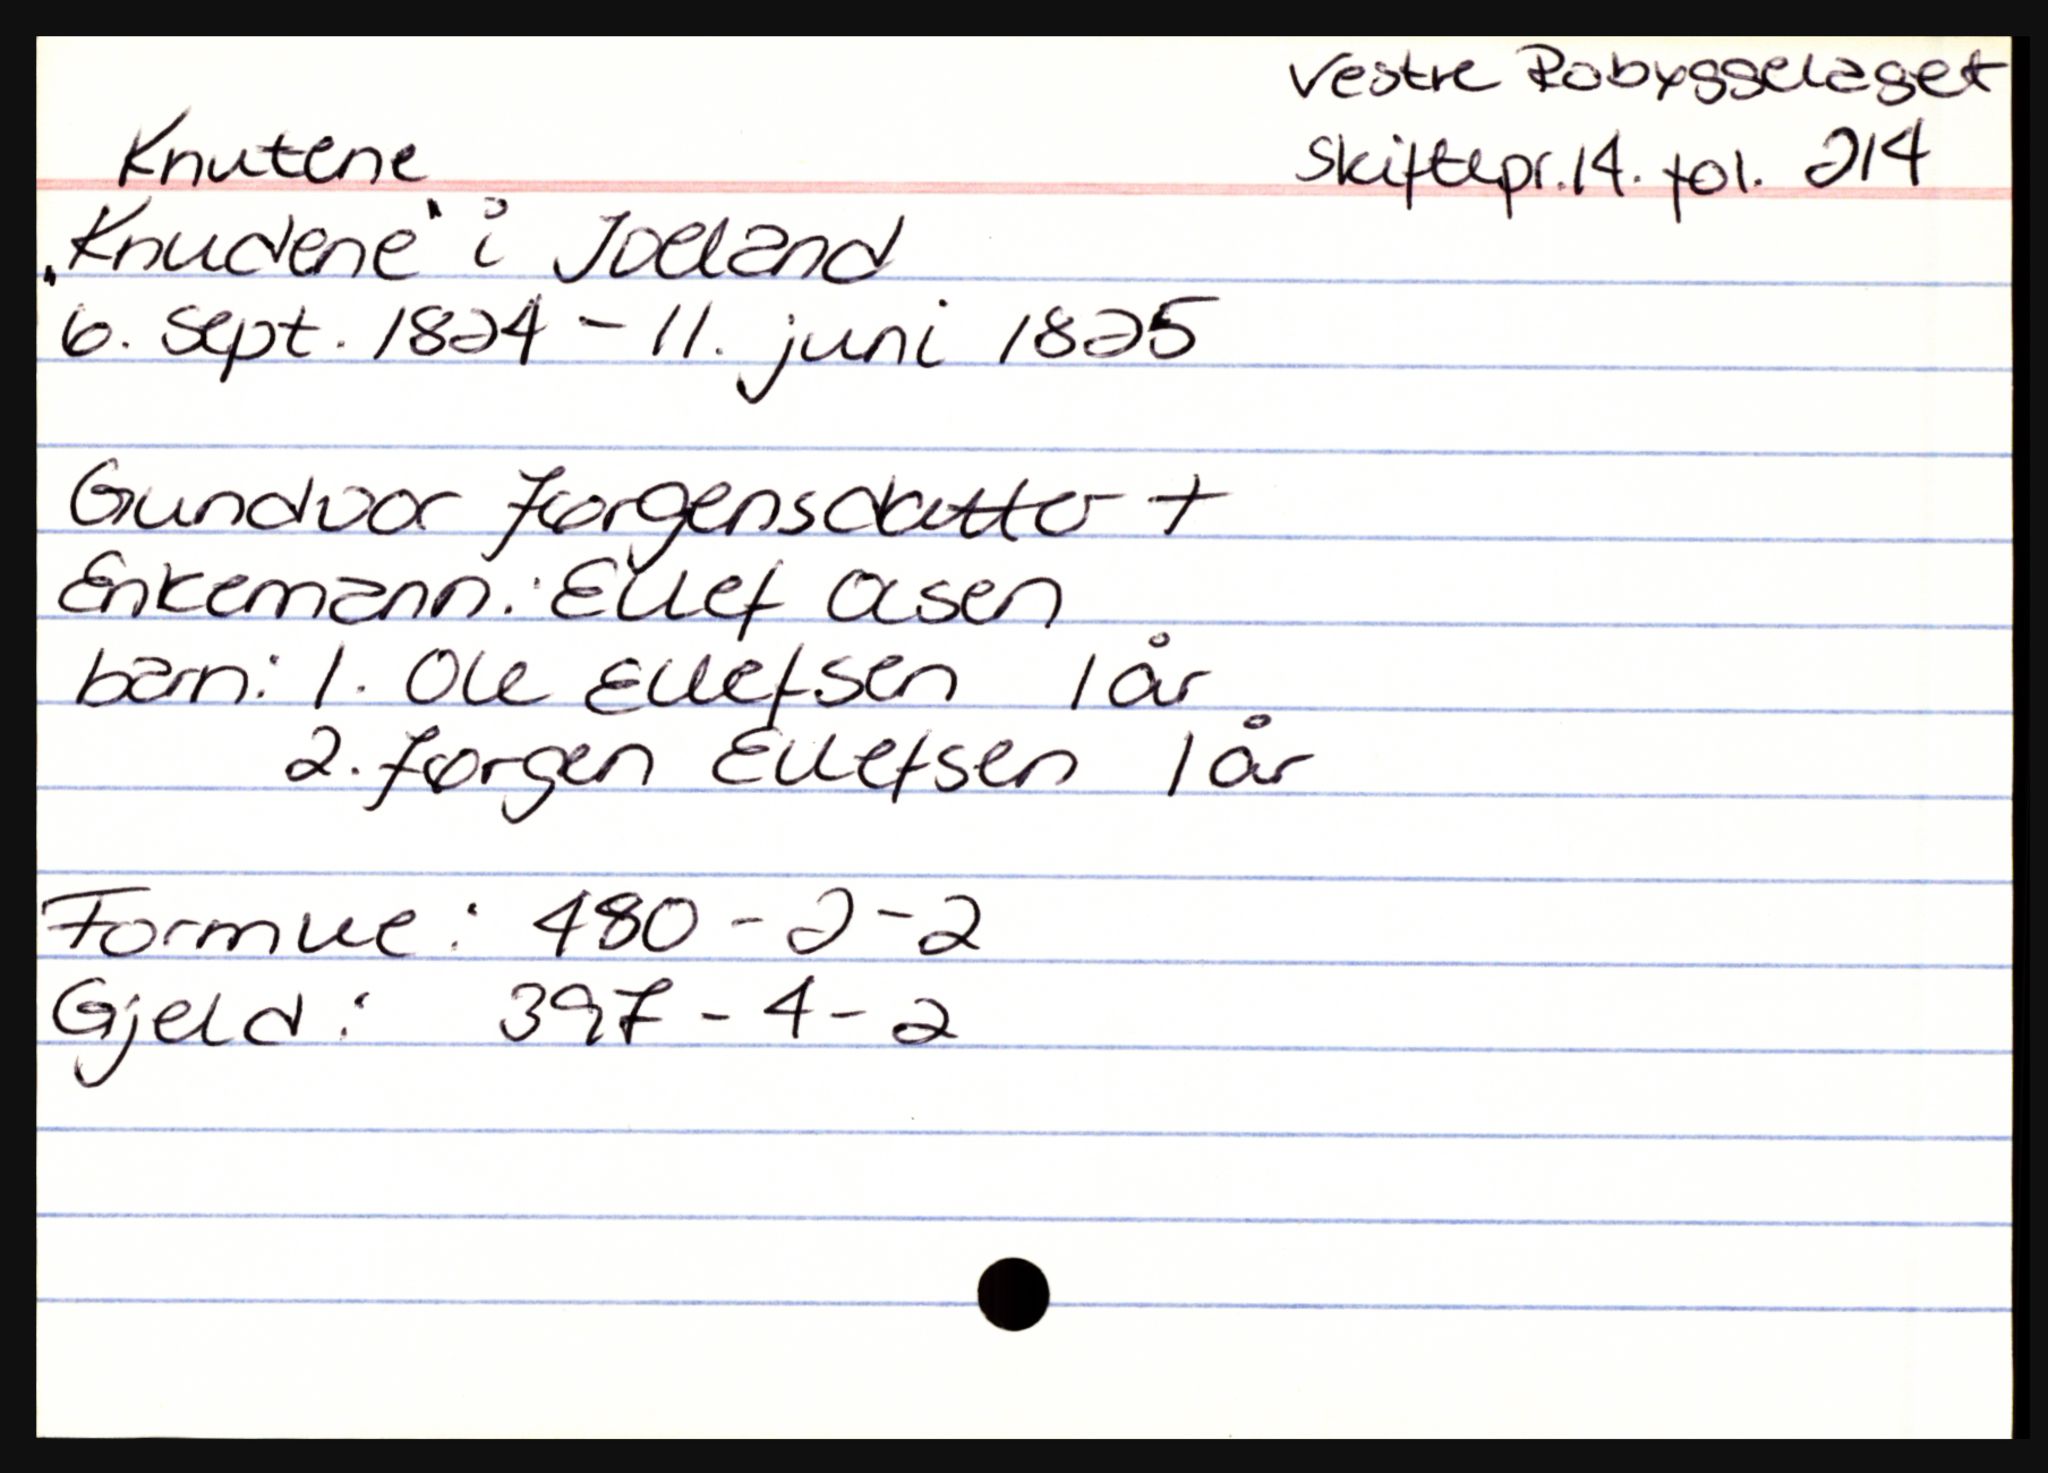 Vestre Robyggelaget
Skiftepr. 14. fol. 214
Knutene
„Knudene" i Joeland
6. sept. 1824 - 11. juni 1825
Gundvor Jørgensdatter +
Enkemann: Ellef Olsen
barn: 1. Ole Ellefsen 1 år
2. Jørgen Ellefsen 1 år
Formue: 480 - 2 - 2
Gjeld: 397 - 4 - 2